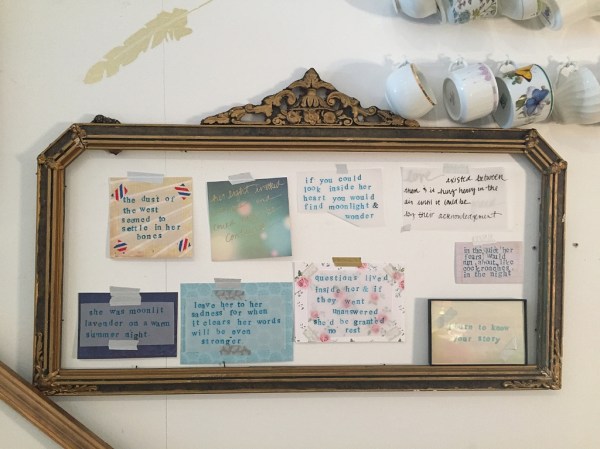 the dust of
the west
seemed to
settle in her
bones
if you could
look inside her
heart you would
find moonlight &
wonder
love existed between
them & is hung heavy in the
air until it could be
by their acknowledgment
in the dark her
fears would
run about like
cockroaches
in the night
she was moonlit
lavender on a warm
summer night.
leave her to her
sadness for when
it clears her words
will be even
stronger
questions lived
inside her & if
they went
unanswered
she'd be granted
no rest
to know
your story